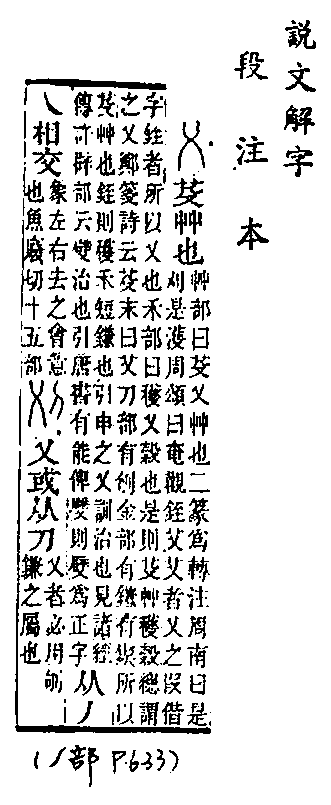 説文解字
段注本
乂 芟艸也
艸部曰芟乂艸也二篆爲轉注周南曰是
刈是濩周頌曰奄觀銍艾艾者乂之叚借
字銍者所以乂也禾部曰穫乂穀也是則芟艸穫穀總謂
之乂鄉箋詩云芟末曰乂刀部有金部有有所以
芟艸也銍則穫禾短鎌也引申之乂訓治也見諸經
傳許辟部云𤕨治也引唐書有能俾𤕨則𤕨爲正字
从丿
乀相交
象左右去之會意
也魚廢切十五部
刈 乂或从刀
乂者必用
鎌之屬也
(丿部 P.633)